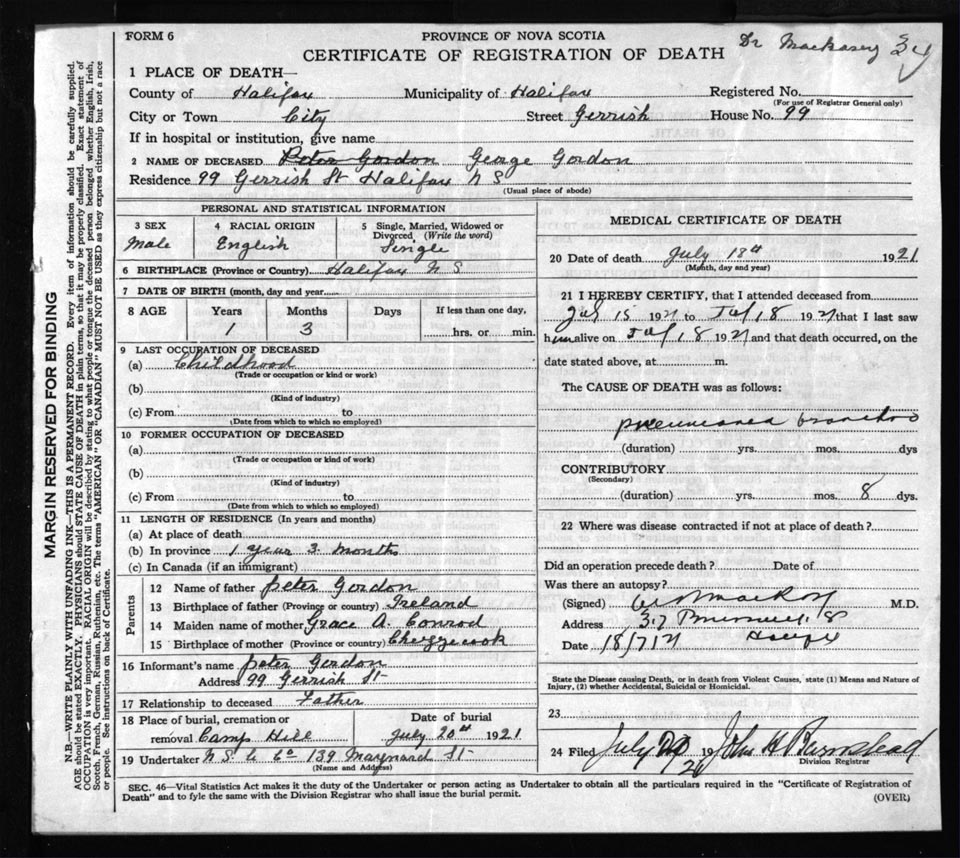 FORM 6
PROVINCE OF NOVA SCOTIA
CERTIFICATE OF REGISTRATION OF DEATH
Dr Mackasey 34
1 PLACE OF DEATH—
County of Halifax Municipality of Halifax Registered No.
(For use of Registrar General only)
City or Town City Street Gerrish House No. 99
If in hospital or institution, give name
2 NAME OF DECEASED Peter Gordon George Gordon
Residence 99 Gerrish St Halifax N S
(Usual place of abode)
PERSONAL AND STATISTICAL INFORMATION
3 SEX
Male
4 RACIAL ORIGIN
English
5 Single, Married, Widowed or
Divorced (Write the word)
Single
6 BIRTHPLACE (Province or Country) Halifax N S
7 DATE OF BIRTH (month, day and year)
8 AGE Years Months Days If less than one day,
1 3 hrs. or min.
9 LAST OCCUPATION OF DECEASED
(a) Childhood
(Trade or occupation or kind or work)
(b)
(Kind of industry)
(c) From to
(Date from which to which so employed)
10 FORMER OCCUPATION OF DECEASED
(a)
(Trade or occupation or kind of work)
(b)
(Kind of industry)
(c) From to
(Date from which to which so employed)
11 LENGTH OF RESIDENCE (In years and months)
(a) At place of death
(b) In province 1 year 3 months
(c) In Canada (if an immigrant)
Parents
12 Name of father Peter Gordon
13 Birthplace of father (Province or country) Ireland
14 Maiden name of mother Grace A. Conrod
15 Birthplace of mother (Province or country) Chezzecook
16 Informant's name Peter Gordon
Address 99 Gerrish St
17 Relationship to deceased Father
18 Place of burial, cremation or
removal Camp Hill
Date of burial
July 20th 1921
19 Undertaker N.S. U Co 139 Maynard St
(Name and Address)
MEDICAL CERTIFICATE OF DEATH
20 Date of death July 18th 1921
(Month, day and year)
21 I HEREBY CERTIFY, that I attended deceased from
July 15 1921 to July 18 1921 that I last saw
him alive on July 18 1921 and that death occurred, on the
date stated above, at m.
The CAUSE OF DEATH was as follows:
pneumonea broncho
(duration) yrs. mos. dys
CONTRIBUTORY
(Secondary)
(duration) yrs. mos. 8 dys.
22 Where was disease contracted if not at place of death?
Did an operation precede death? Date of
Was there an autopsy?
(Signed) M.D.
Address 37
Halifax
Date 18/7/21
State the Disease causing Death, or in death from Violent Causes, state (1) Means and Nature of
Injury, (2) whether Accidental, Suicidal or Homicidal.
23
24 Filed July 20 1921 John H Barnstead
Division Registrar
SEC. 46—Vital Statistics Act makes it the duty of the Undertaker or person acting as Undertaker to obtain all the particulars required in the "Certificate of Registration of
Death" and to fyle the same with the Division Registrar who shall issue the burial permit.
(OVER)
MARGIN RESERVED FOR BINDING
N.B.—WRITE PLAINLY WITH UNFADING INK—THIS IS A PERMANENT RECORD. Every item of information should be carefully supplied.
AGE should be stated EXACTLY. PHYSICIANS should STATE CAUSE OF DEATH in plain terms, so that it may be properly classified. Exact statement of
OCCUPATION is very important. RACIAL ORIGIN will be described by stating to what people or tongue the deceased person belonged whether English, Irish,
Scotch, French, German, Russian, Ruthenian, etc. The terms "AMERICAN" or "CANADIAN" MUST NOT BE USED as they express citizenship but not a race
or people. See instructions on back of Certificate.